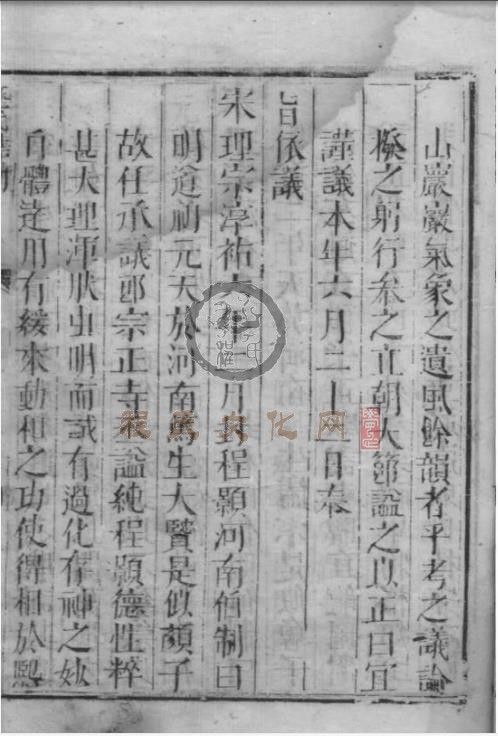 山巖巖氣象之遺風餘韻者乎考之議論
揆之躬行叅之立朝大節謚之以正曰宜
謹議本年六月二十日奉
旨依議
宋理宗淳祐年二月程顥河南伯制曰
明道禎元天於河南薰生大賢是似顏子
故任承議郎宗正寺謚純程顥德性粹
甚天理渾然由明而誠有過化存神之妙
自體達用有綏來動和之功使得相於熙
程馬文化网